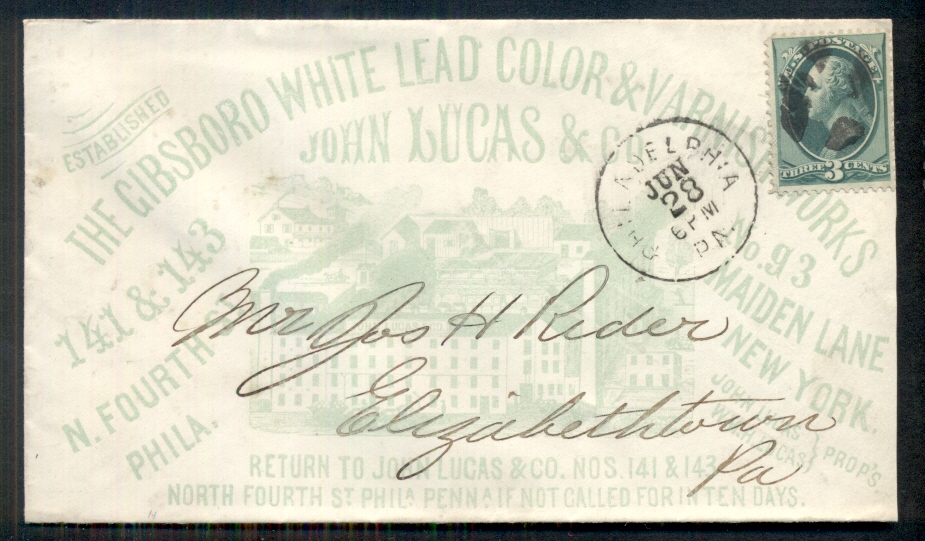 ESTABLISHED
THE GIBSBORO WHITE LEAD COLOR & VARNISH WORKS
JOHN LUCAS & CO.
141 & 143
N. FOURTH
PHILA.
No. 93
MAIDEN LANE
NEW YORK.
JOHN LUCAS
WM. H. LUCAS
PROP'S.
U.S. POSTAGE
THREE 3 CENTS
PHILADELPHIA
JUN
28
6 PM
PA.
Mr Jos H Rider
Elizabethtown
Pa
RETURN TO JOHN LUCAS & CO. NOS. 141 & 143
NORTH FOURTH ST PHILA PENNA IF NOT CALLED FOR IN TEN DAYS.